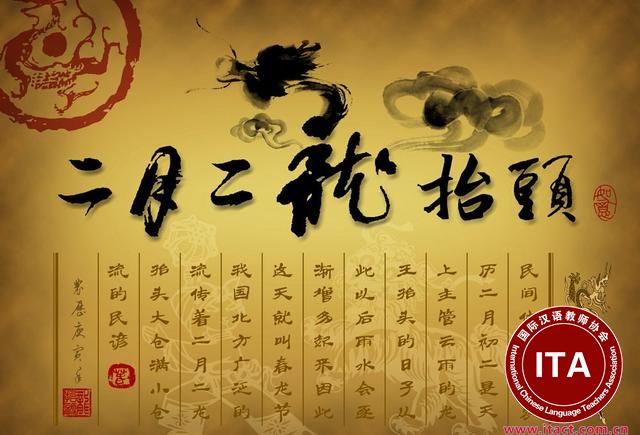 二月二龍抬頭
如意
民间
历二月初二是天
上主管云雨的龙
王抬头的日子从
此以后雨水会逐
渐增多起来因此
这天就叫春龙节
我国北方广泛的
流传着二月二龙
抬头大仓满小仓
流的民谚
农历庚寅年
国际汉语教师协会
ITA
International Chinese Language Teachers Association
www.itact.com.cn